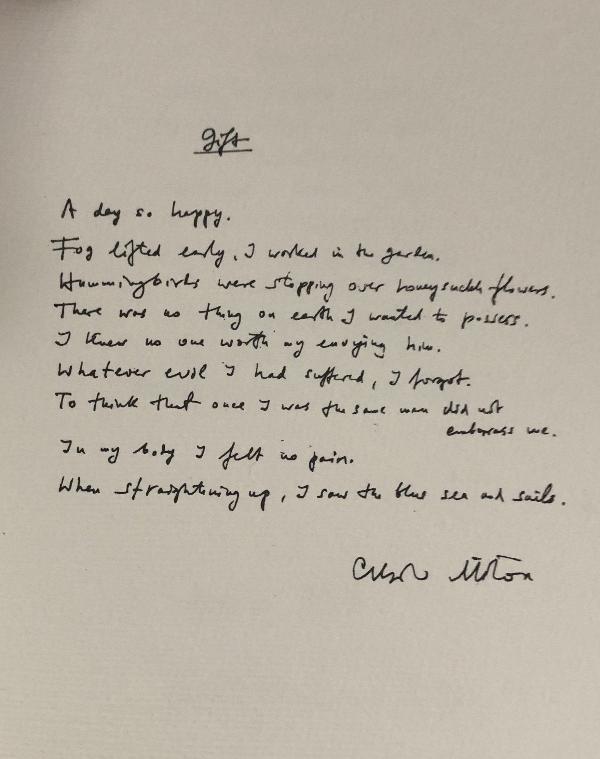 Gift
A day so happy.
Fog lifted early, I worked in the garden.
Hummingbirds were stopping over honeysuckle flowers.
There was no thing on earth I wanted to possess.
I knew no one worth my envying him.
Whatever evil I had suffered, I forgot.
To think that once I was the same man did not
embarrass me.
In my body I felt no pain.
When straightening up, I saw the blue sea and sails.